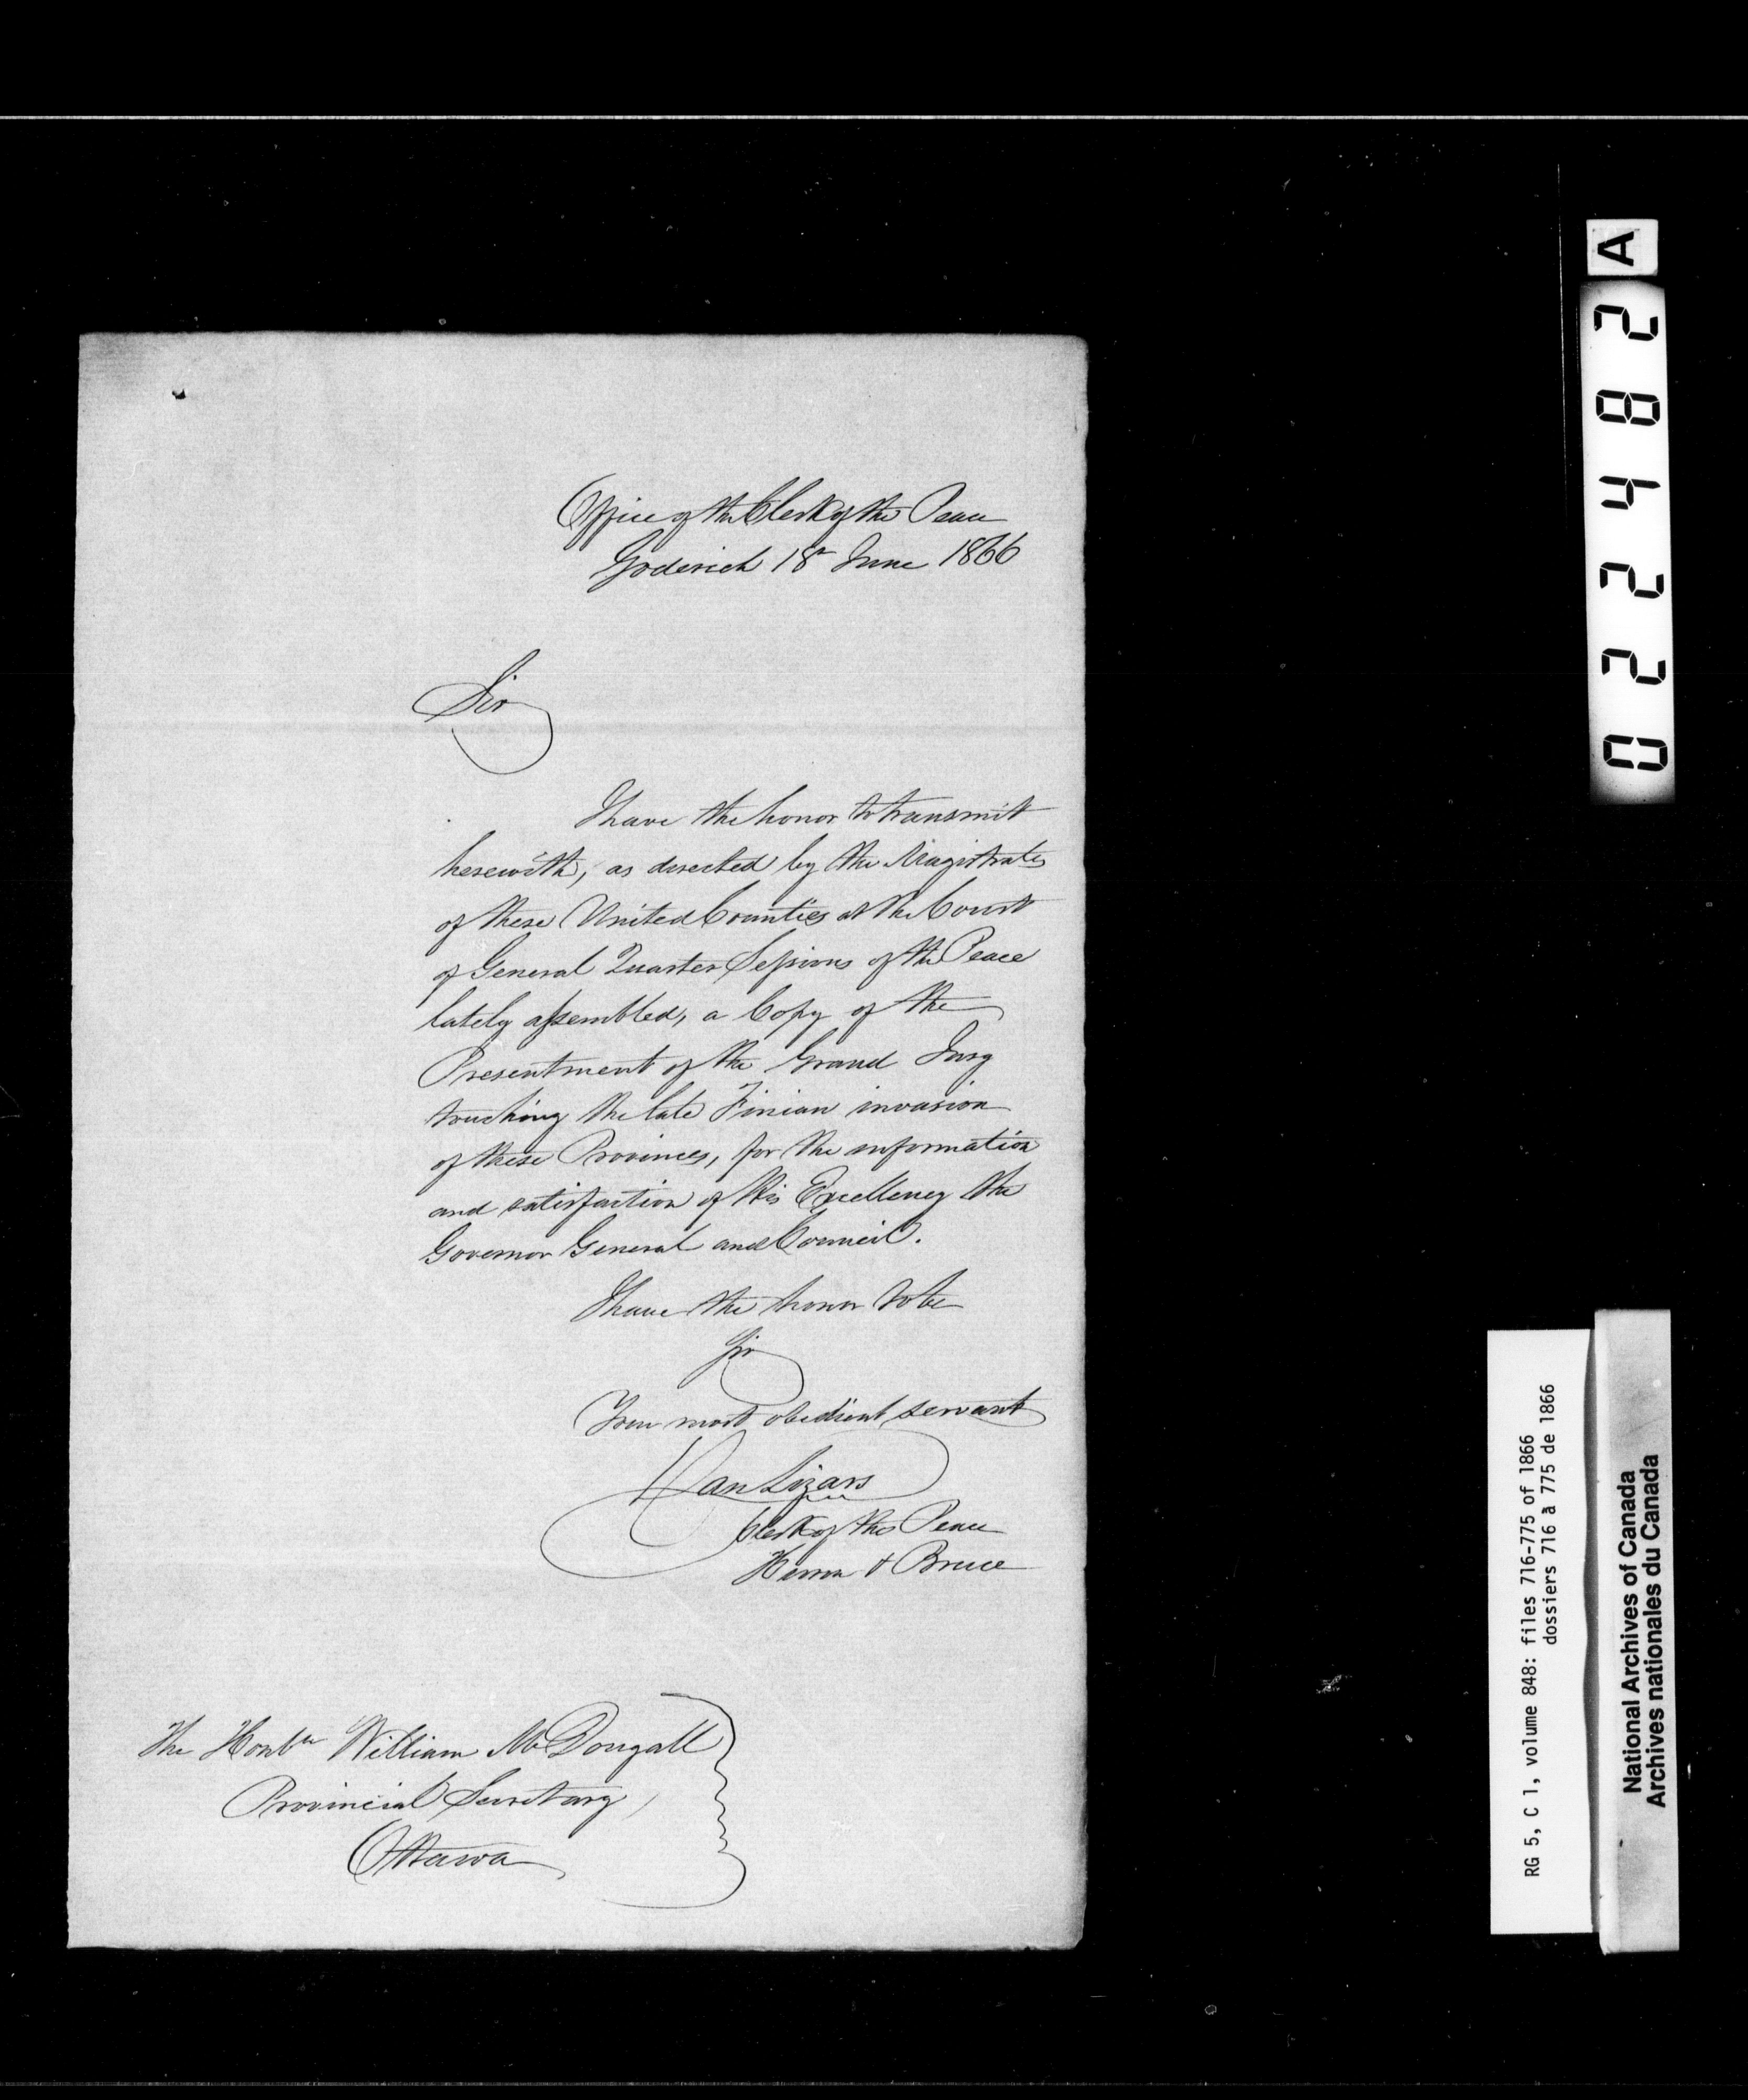 Office of the Clerk of the Peace
Goderich 18th June 1866
Sir
I have the honor to transmit
herewith, as directed by the Magistrates
of these United Counties at the Court
of General Quarter Sessions of the Peace
lately assembled, a Copy of the
Presentment of the Grand Jury
touching the late Finian invasion
of these Provinces, for the information
and satisfaction of His Excellency the
Governor General and Council.
I have the honor to be
Sir
Your most obedient servant
Dan Lizars
Clerk of the Peace
Huron & Bruce
The Honble William McDougall
Provincial Secretary,
Ottawa
022482 A
RG 5, C 1, volume 848: files 716-775 of 1866
dossiers 716 à 775 de 1866
National Archives of Canada
Archives nationales du Canada